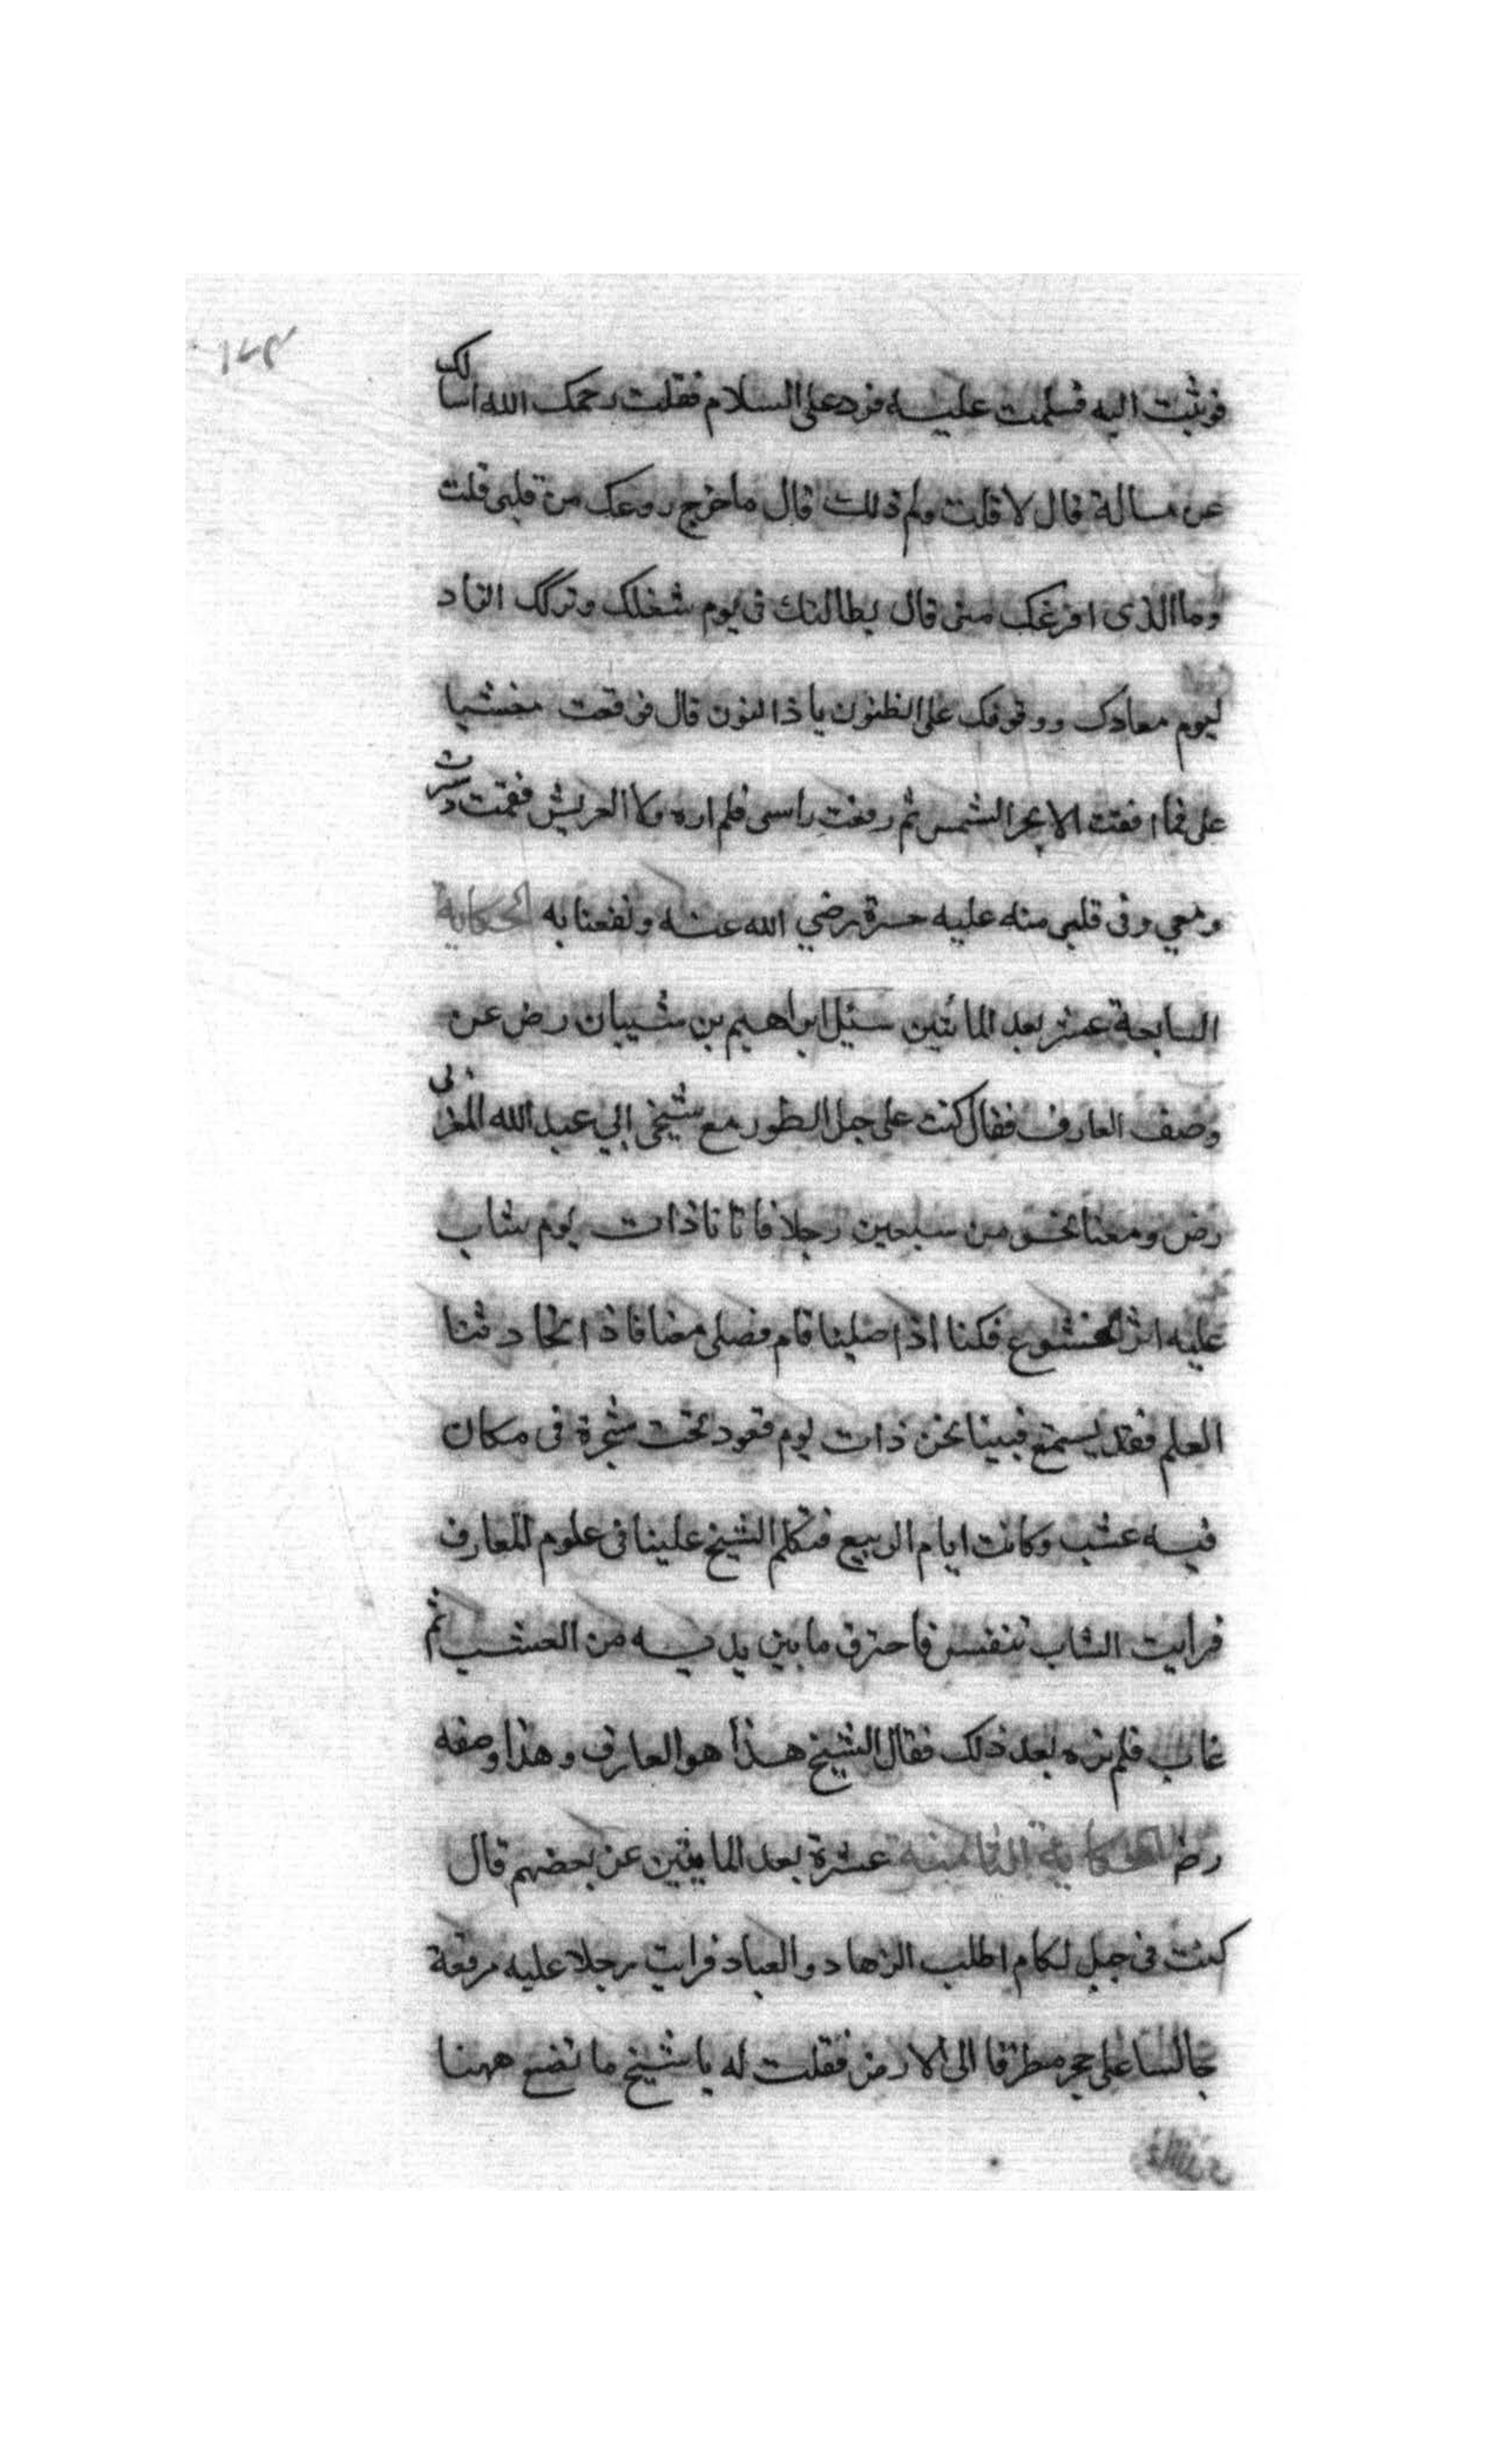 ١٢٩
فوثبت اليه فسلمت عليه فرد على السلام فقلت رحمك الله اسالك
عن مسالة قال لا قلت ولم ذلك قال ما خرج روعك من قلبى قلت
وما الذى افزعك منى قال بطالتك فى يوم شغلك وتركك الزاد
ليوم معادك ووقوفك على الظنون يا ذا النون قال فوقعت مغشيا
على فما افقت الا بحر الشمس ثم رفعت راسى فلم اره ولا العريش فقمت وسرت
ومعي وفى قلبى منه عليه حسرة رضي الله عنه ونفعنا به الحكاية
السابعة عشر بعد المائتين سئل ابراهيم بن شيبان رض عن
وصف العارف فقال كنت على جبل الطور مع شيخى ابي عبد الله المغربى
رض ومعنا نحو من سبعين رجلا فاتانا ذات يوم شاب
عليه اثر الخشوع فكنا اذا صلينا قام فصلى معنا فاذا تجاذبنا
العلم فقد يستمع فبينا نحن ذات يوم قعود تحت شجرة فى مكان
فيه عشب وكانت ايام الربيع فتكلم الشيخ علينا فى علوم المعارف
فرايت الشاب تنفس فاحترق ما بين يديه من العشب ثم
غاب فلم نره بعد ذلك فقال الشيخ هذا هو العارف وهذا وصفه
رض الحكاية الثامنة عشرة بعد المايتين عن بعضهم قال
كنت فى جبل لكام اطلب الزهاد والعباد فرايت رجلا عليه مرقعة
جالسا على حجر مطرقا الى الارض فقلت له يا شيخ ما تصنع ههنا